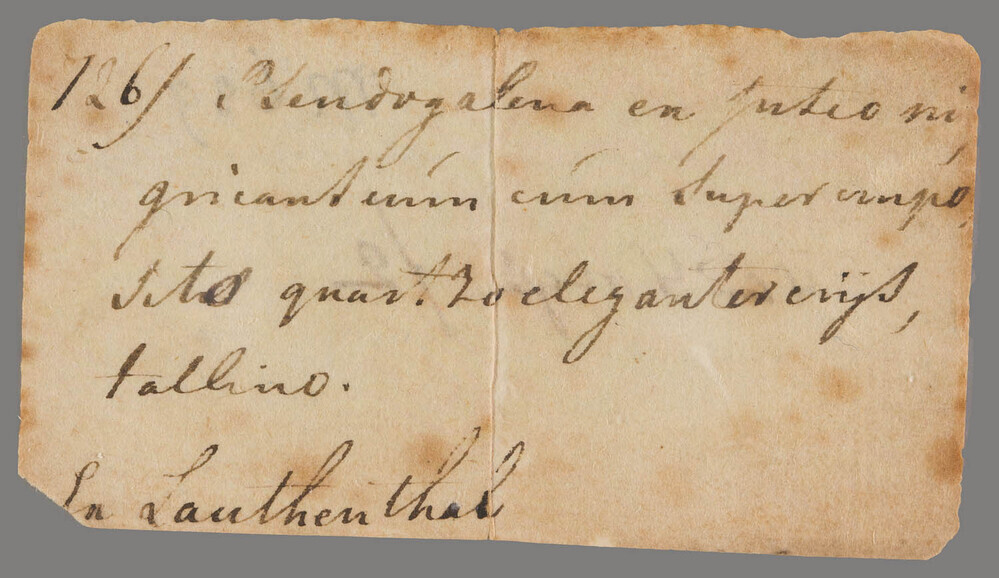 126) Pseudogalena ex luteo ni,
gricantium cum superimpo,
sito quartzo eleganter crijs,
tallino.
In Lauthenthal